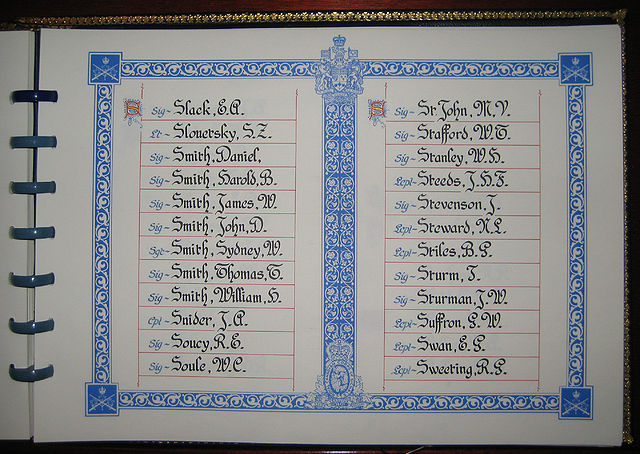 S
Sig~ Slack, E.A.
Lt~ Slouetsky, S.Z.
Sig~ Smith, Daniel,
Sig~ Smith, Harold, B.
Sig~ Smith, James, W.
Sig~ Smith, John, D.
Sgt~ Smith, Sydney, W.
Sig~ Smith, Thomas, T.
Sig~ Smith, William, H.
Cpl~ Snider, J.A.
Sig~ Soucy, R.E.
Sig~ Soule, W.C.
S
Sig~ St. John, M.V.
Sig~ Stafford, W.T.
Sig~ Stanley, W.H.
Lcpl~ Steeds, J.H.F.
Sig~ Stevenson, J.
Lcpl~ Steward, N.L.
Lcpl~ Stiles, B.G.
Sig~ Sturm, J.
Sig~ Sturman, J.W.
Lcpl~ Suffron, G.W.
Lcpl~ Swan, E.G.
Lcpl~ Sweeting, R.G.